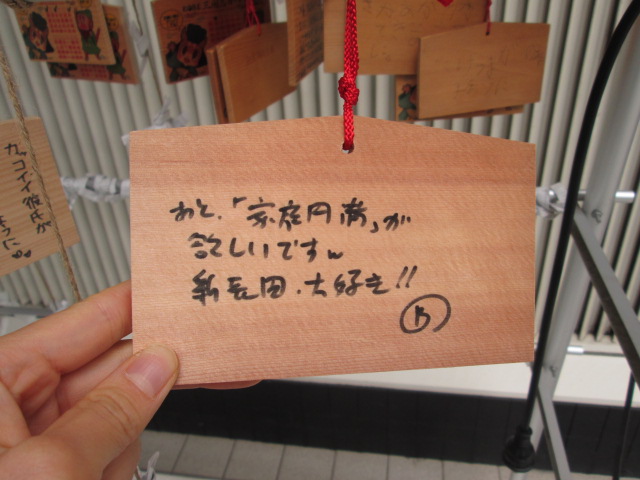 あと、「家庭円満」が
欲しいです。
新長田、大好き!!
カッコイイ彼氏が